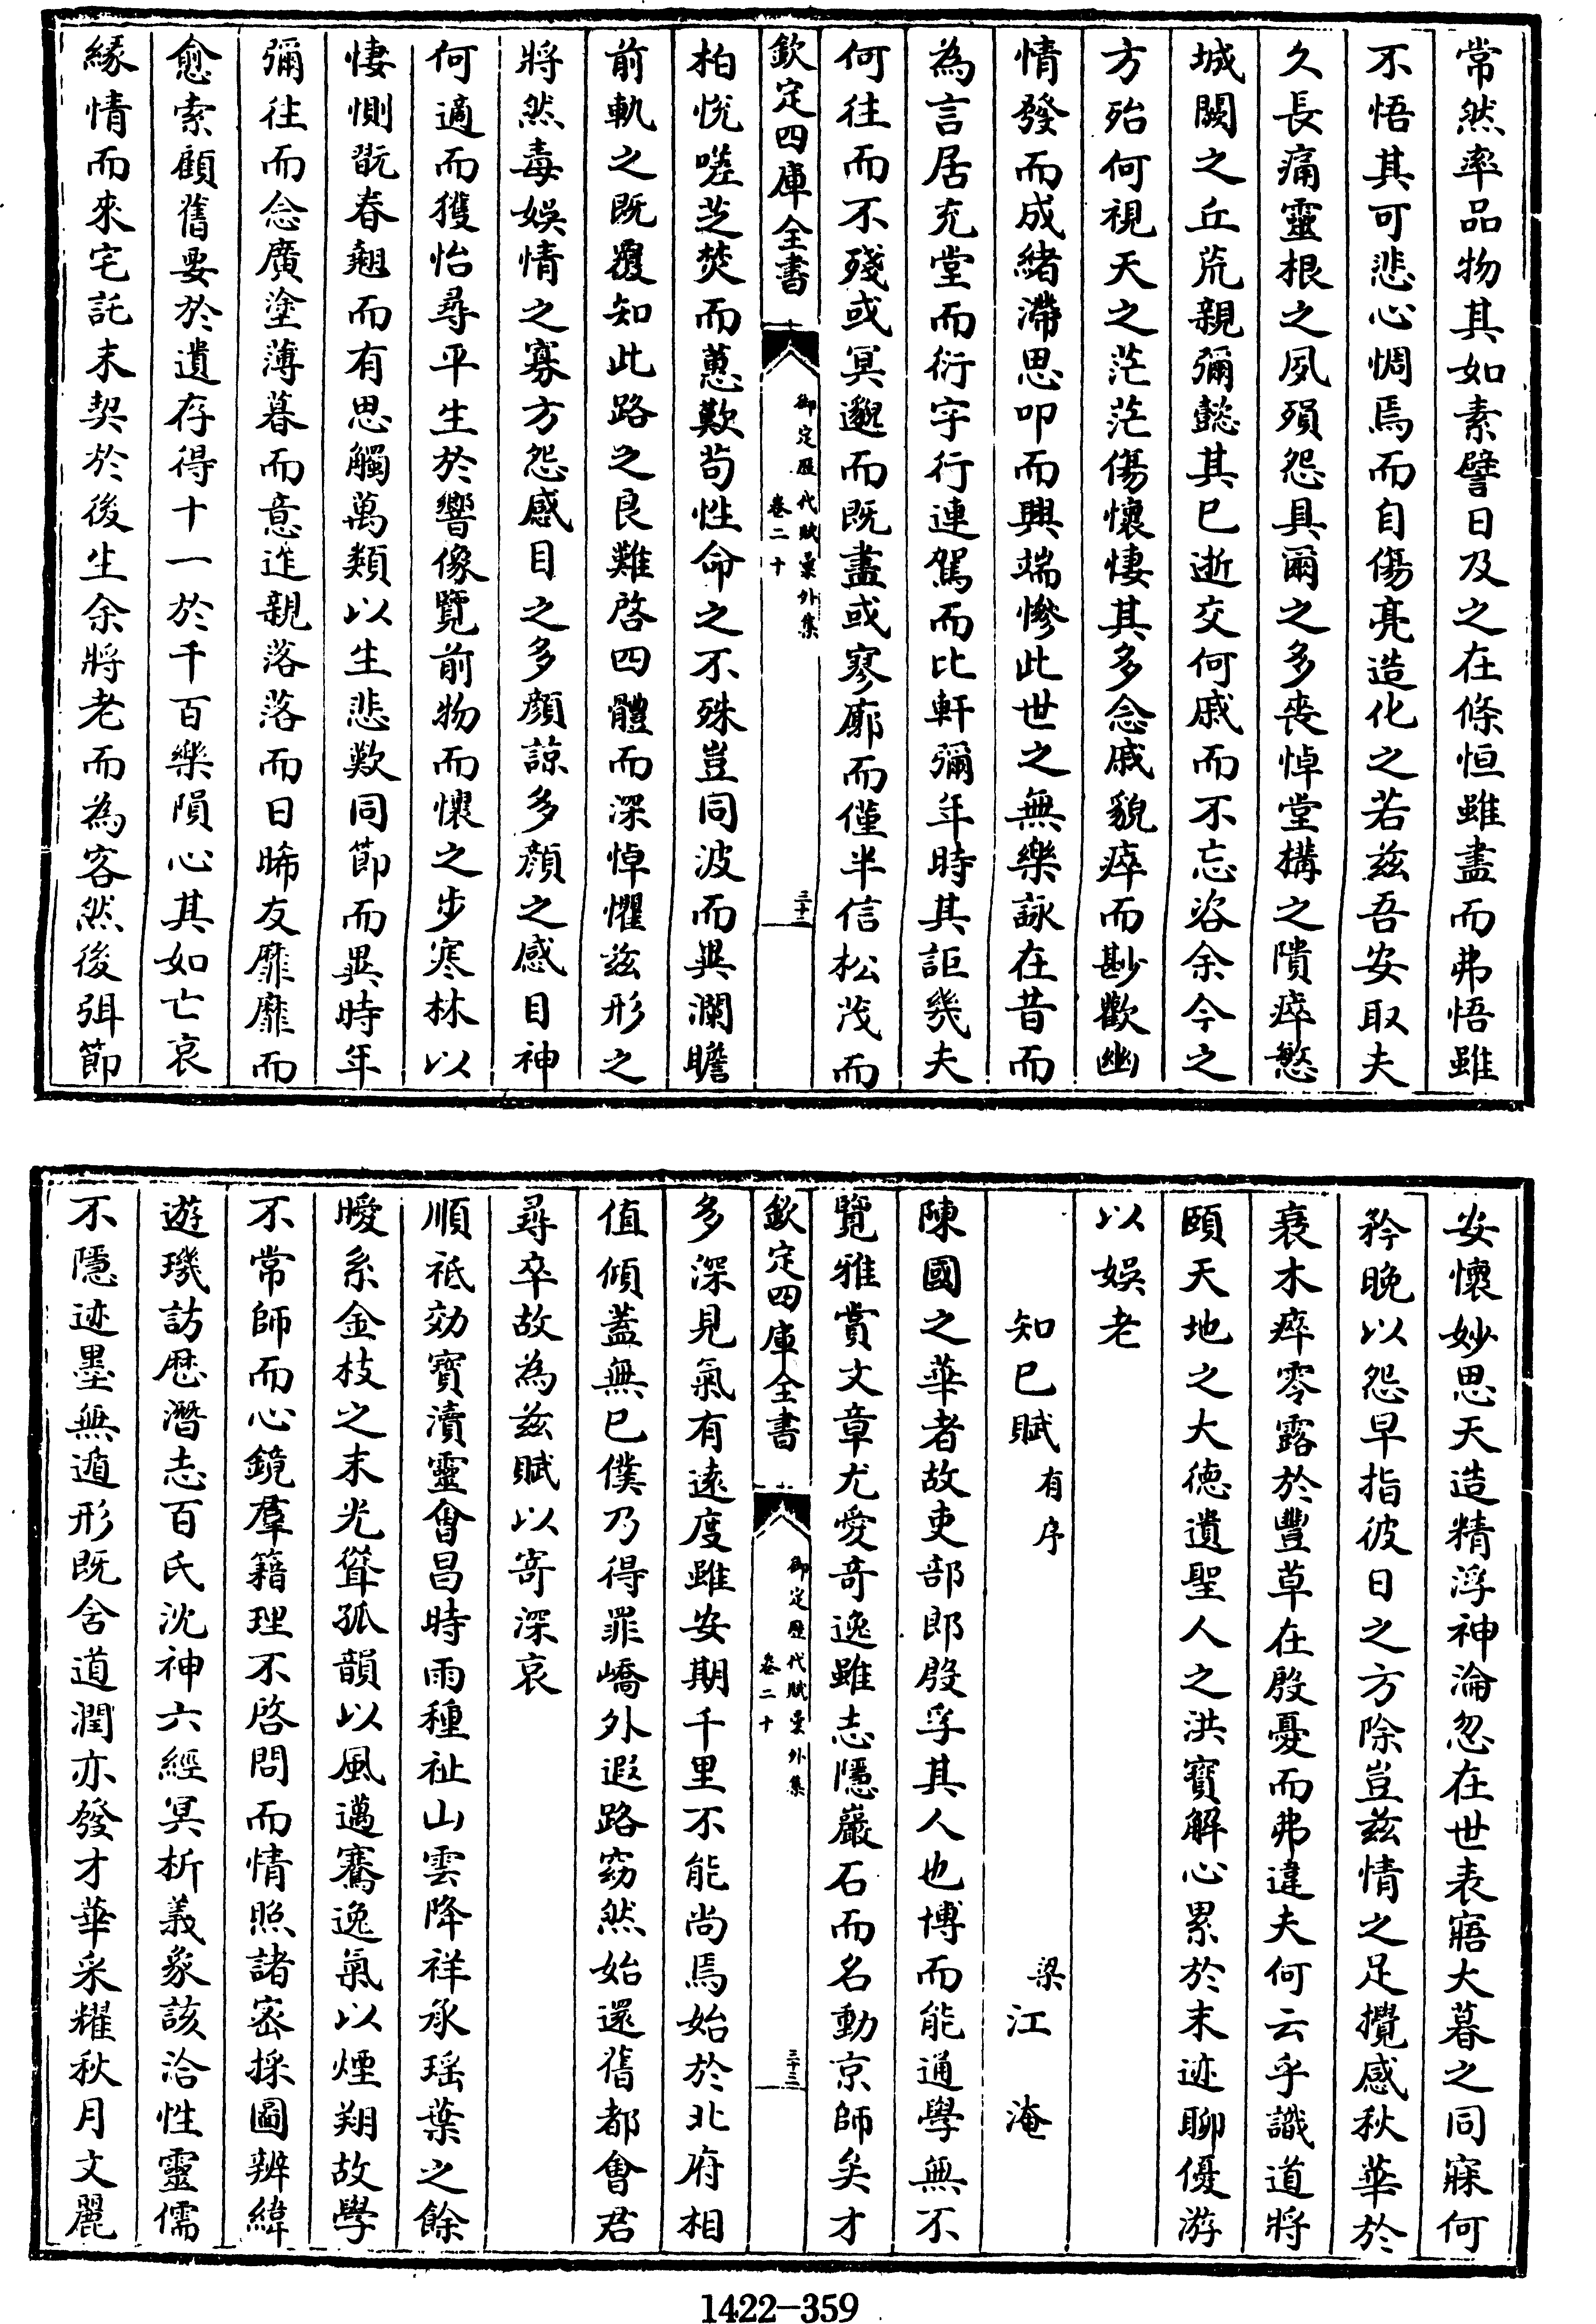 常然率品物其如素譬日及之在條恒雖盡而弗悟雖
不悟其可悲心惆焉而自傷亮造化之若兹吾安取夫
久長痛靈根之夙殞怨具爾之多喪悼堂構之隤瘁慜
城闕之丘荒親彌懿其已逝交何戚而不忘咨余今之
方殆何視天之茫茫傷懷悽其多念戚貌瘁而尠歡幽
情發而成緒滯思叩而興端慘此世之無樂詠在昔而
為言居充堂而衍宇行連駕而比軒彌年時其詎幾夫
何往而不殘或冥邈而既盡或寥廓而僅半信松茂而
欽定四庫全書
御定歷代賦彙外集
卷二十
三十二
柏悅嗟芝焚而蕙歎茍性命之不殊豈同波而異瀾瞻
前軌之既覆知此路之良難啓四體而深悼懼兹形之
將然毒娛情之寡方怨感目之多顏諒多顏之感目神
何適而獲怡尋平生於響像覽前物而懷之步寒林以
悽惻翫春翹而有思觸萬類以生悲歎同節而異時年
彌往而念廣塗薄暮而意迮親落落而日晞友靡靡而
愈索顧舊要於遺存得十一於千百樂隤心其如亡哀
緣情而來宅託末契於後生余將老而為客然後弭節
安懷妙思天造精浮神淪忽在世表寤大暮之同寐何
矜晚以怨早指彼日之方除豈兹情之足攪感秋華於
衰木瘁零露於豐草在殷憂而弗違夫何云乎識道將
頤天地之大德遺聖人之洪寶解心累於末迹聊優游
以娛老
知已賦有序 梁江淹
陳國之華者故吏部郎殷孚其人也博而能通學無不
覽雅賞文章尤愛奇逸雖志隱巖石而名動京師矣才
欽定四庫全書
御定歷代賦彙外集
卷二十
三十三
多深見氣有遠度雖安期千里不能尚焉始於北府相
值傾蓋無已僕乃得罪嶠外遐路窈然始還舊都會君
尋卒故為兹賦以寄深哀
順祇効寶瀆靈會昌時雨種祉山雲降祥承瑶葉之餘
曖系金枝之末光聳孤韻以風邁騫逸氣以煙翔故學
不常師而心鏡羣籍理不啓問而情照諸密採圖辨緯
遊璣訪厯潛志百氏沈神六經冥析義象該洽性靈儒
不隱迹墨無遁形既舍道潤亦發才華采耀秋月文麗
1422—359